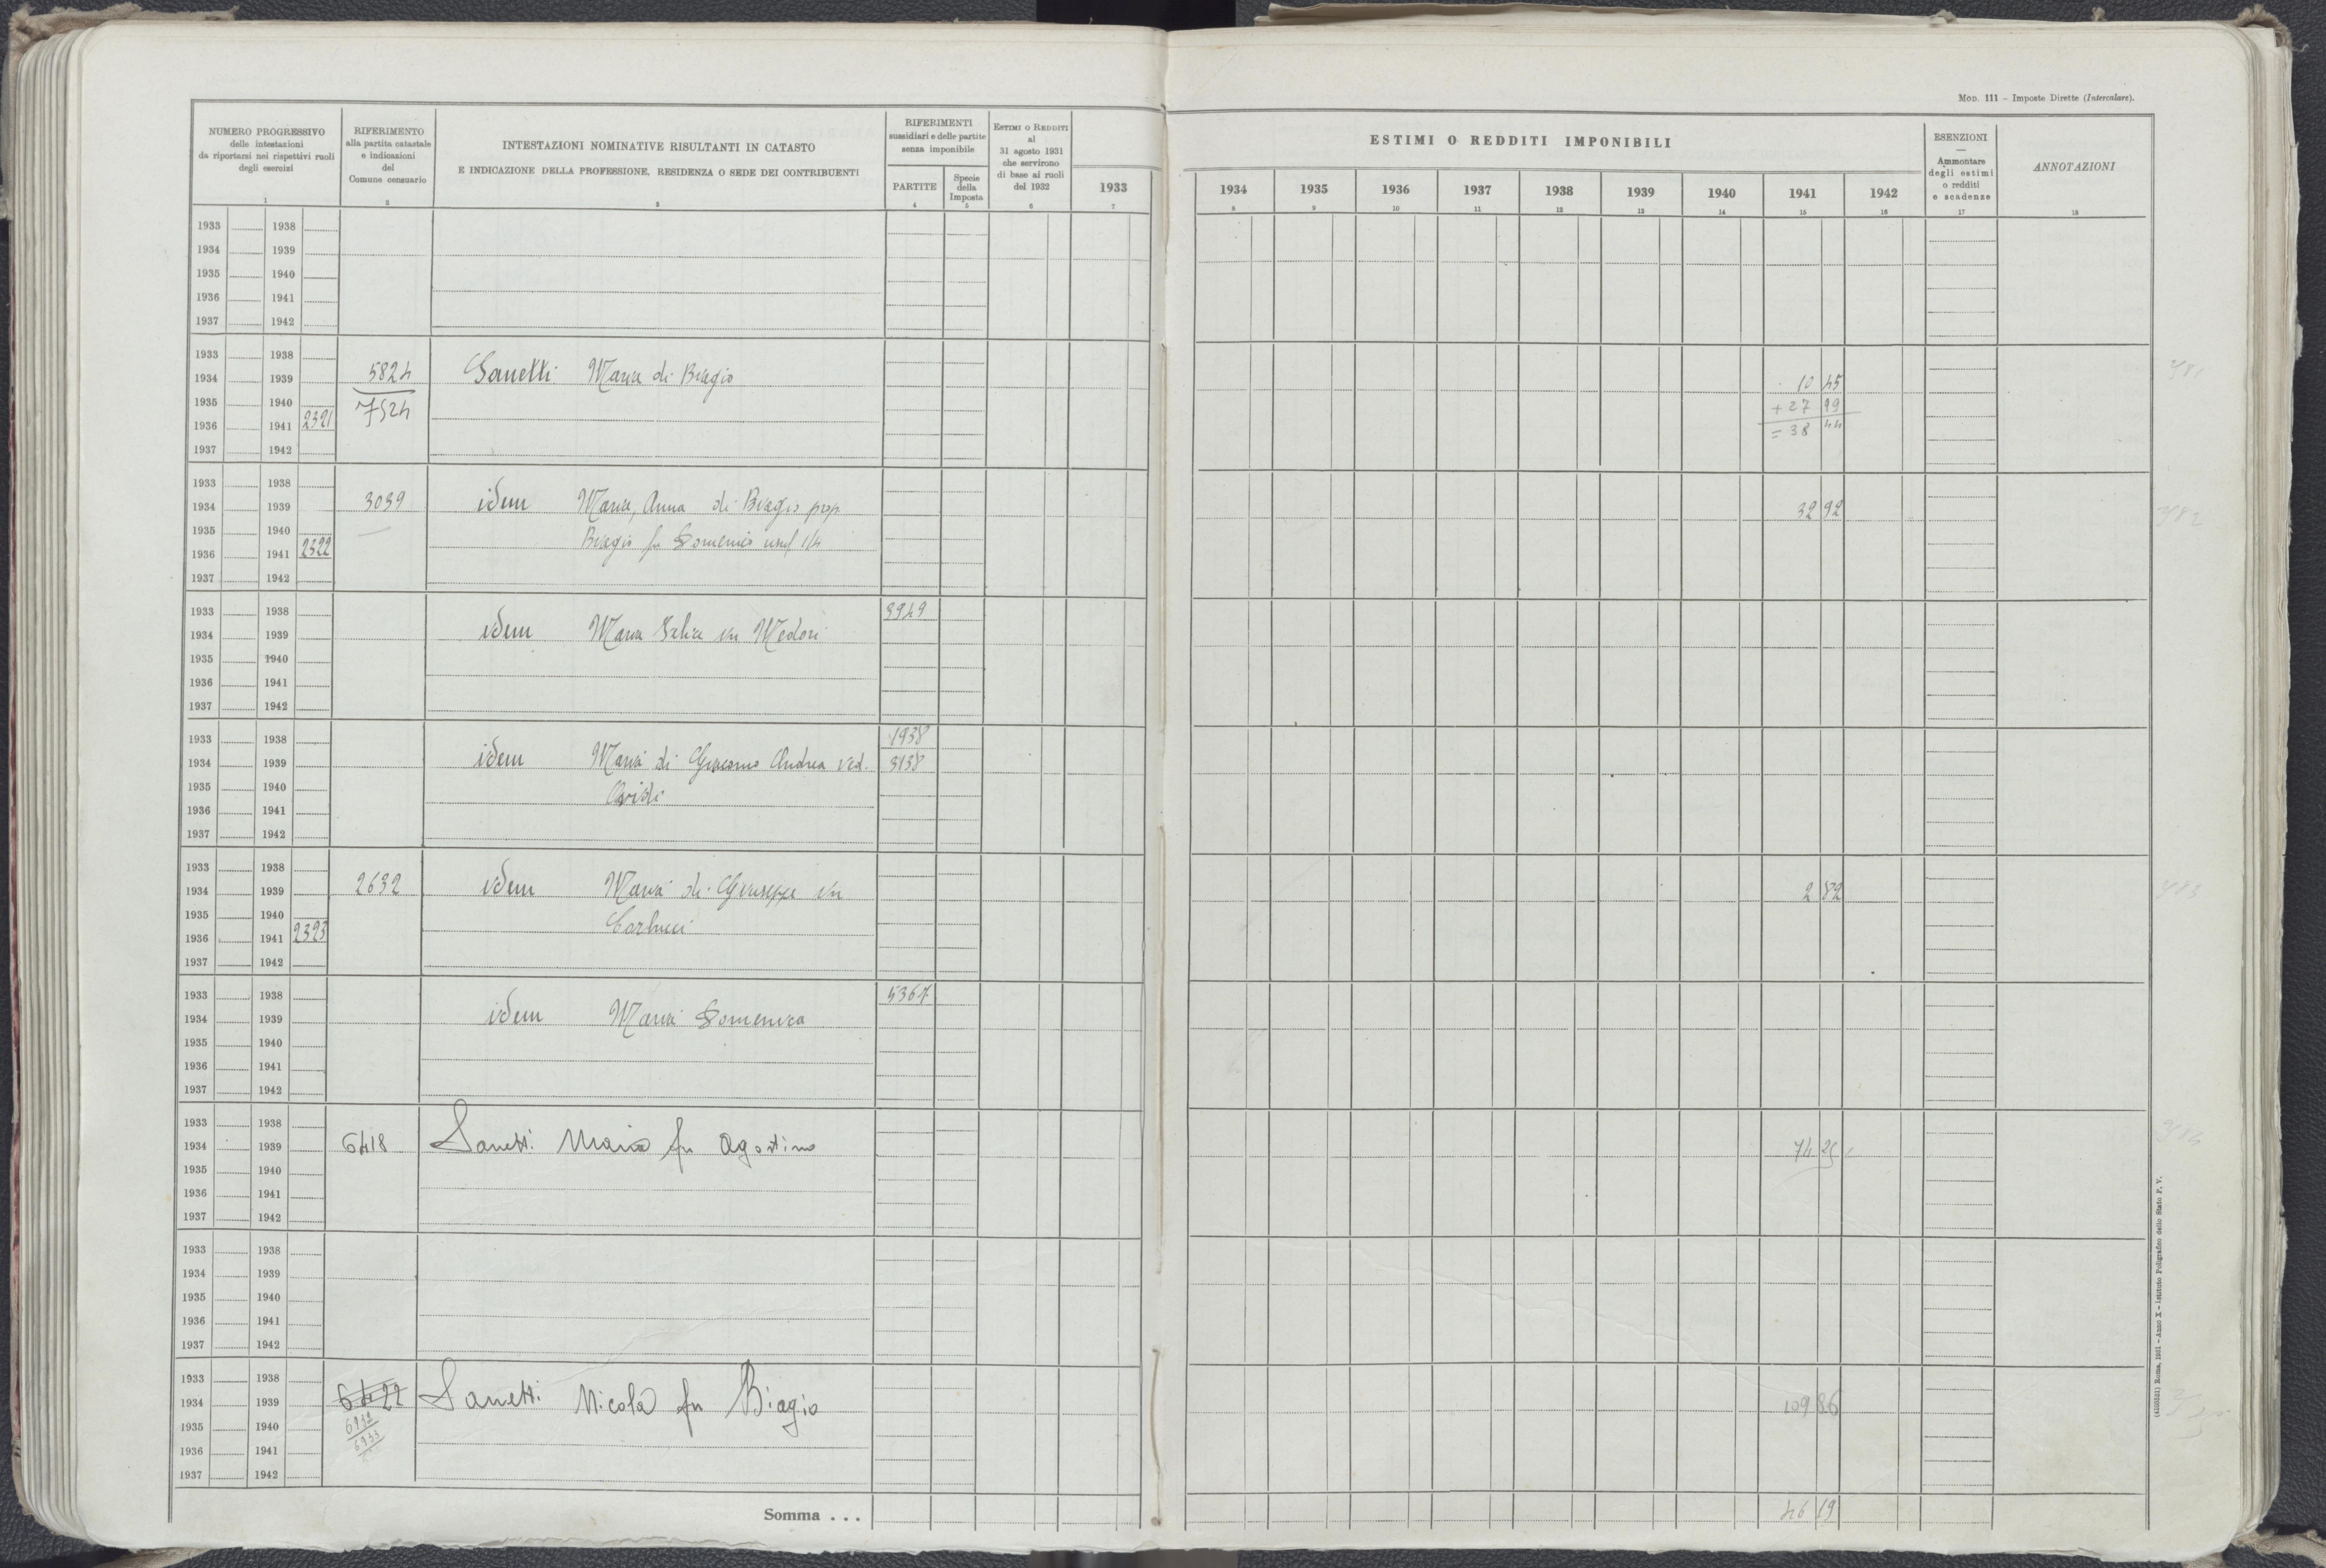 MOD. 111 - Imposte Dirette (Intercalare).
NUMERO PROGRESSIVO
delle intestazioni
da riportarsi nei rispettivi ruoli
degli esercizi
1
RIFERIMENTO
alla partita catastale
e indicazioni
del
Comune censuario
2
INTESTAZIONI NOMINATIVE RISULTANTI IN CATASTO
E INDICAZIONE DELLA PROFESSIONE, RESIDENZA O SEDE DEI CONTRIBUENTI
3
RIFERIMENTI
sussidiari e delle partite
senza imponibile
PARTITE
4
Specie
della
Imposta
5
ESTIMI O REDDITI
al
31 agosto 1931
che servirono
di base ai ruoli
del 1932
6
ESTIMI O REDDITI IMPONIBILI
1933 1934 1935 1936 1937 1938 1939 1940 1941 1942
7 8 9 10 11 12 13 14 15 16
ESENZIONI
—
Ammontare
degli estimi
o redditi
e scadenze
17
ANNOTAZIONI
18
1933 1938
1934 1939
1935 1940
1936 1941
1937 1942
1933 1938
1934 1939 5824 Sanetti Maria di Biagio 10 45
1935 1940 7524 + 27 99
1936 1941 2321 = 38 44
1937 1942
1933 1938
1934 1939 3039 idem Maria, Anna di Biagio prop 32 92
1935 1940 Biagio fu Domenico usuf 1/4
1936 1941 2322
1937 1942
1933 1938 3949
1934 1939 idem Maria in Medori
1935 1940
1936 1941
1937 1942
1933 1938 1938
1934 1939 idem Maria di Giacomo Andrea ved. 3138
1935 1940
1936 1941
1937 1942
1933 1938
1934 1939 2632 idem Maria di Giuseppe in 2 82
1935 1940 Carlucci
1936 1941 2323
1937 1942
1933 1938 5367
1934 1939 idem Maria Domenica
1935 1940
1936 1941
1937 1942
1933 1938
1934 1939 6418 Sanetti Maria fu Agostino 74 25
1935 1940
1936 1941
1937 1942
1933 1938
1934 1939
1935 1940
1936 1941
1937 1942
1933 1938
1934 1939 6422 Sanetti Nicola fu Biagio 109 86
1935 1940 6932
1936 1941 6933
1937 1942
Somma . . . 46 19